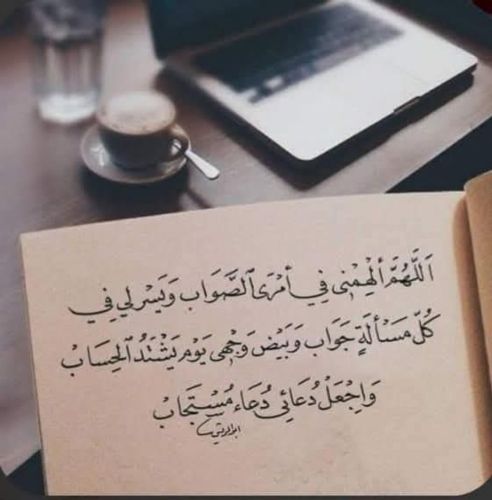 اَللَّهُمَّ أَلْهِمْنِي فِي أَمْرِي الصَّوَاب وَيَسِّرْ لِي فِي
كُلِّ مَسْأَلَةٍ جَوَاب وَبَيِّضْ وَجْهِي يَوْمَ يَشْتَدُّ الْحِسَاب
وَاجْعَلْ دُعَائِي دُعَاء مُسْتَجَاب